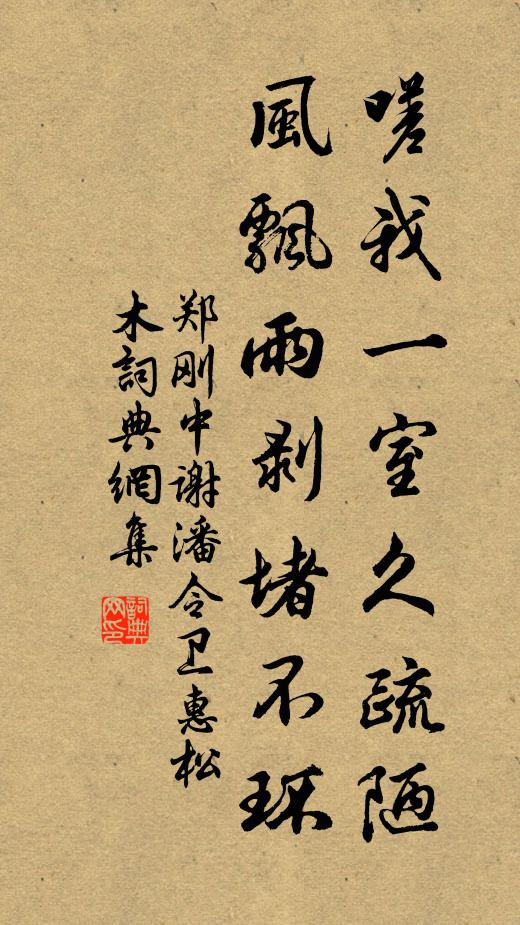 嗟我一室久疏陋
風飄雨剥堵不环
郑刚中谢潘令卫惠松
木詞典網集
詞典
网印